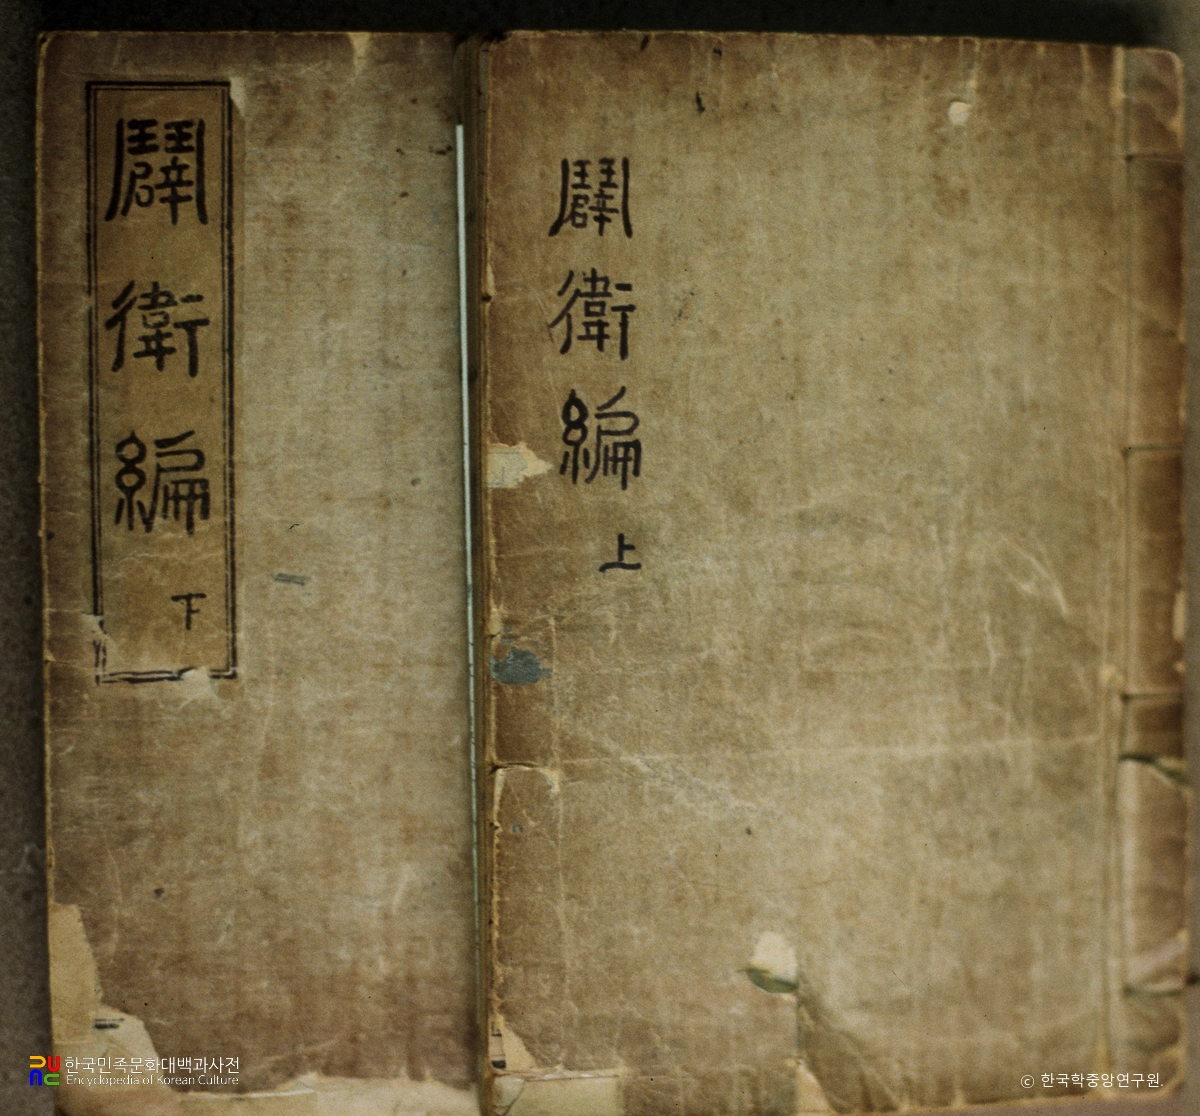 闢衛編
下
闢衛編
上
한국민족문화대백과사전
Encyclopedia of Korean Culture
© 한국학중앙연구원.